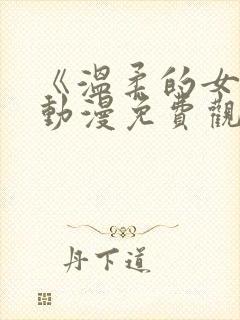 《溫柔的女
動漫免費觀
丹下道